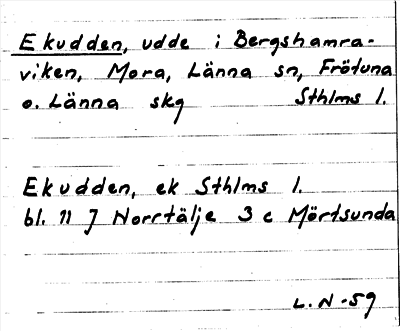 Ekudden, udde i Bergshamra-
viken, Mora, Länna sn, Frötuna
o. Länna skg Sthlms l.
Ekudden, ek Sthlms l.
bl. 11 J Norrtälje 3 c Mörtsunda
L.N-59